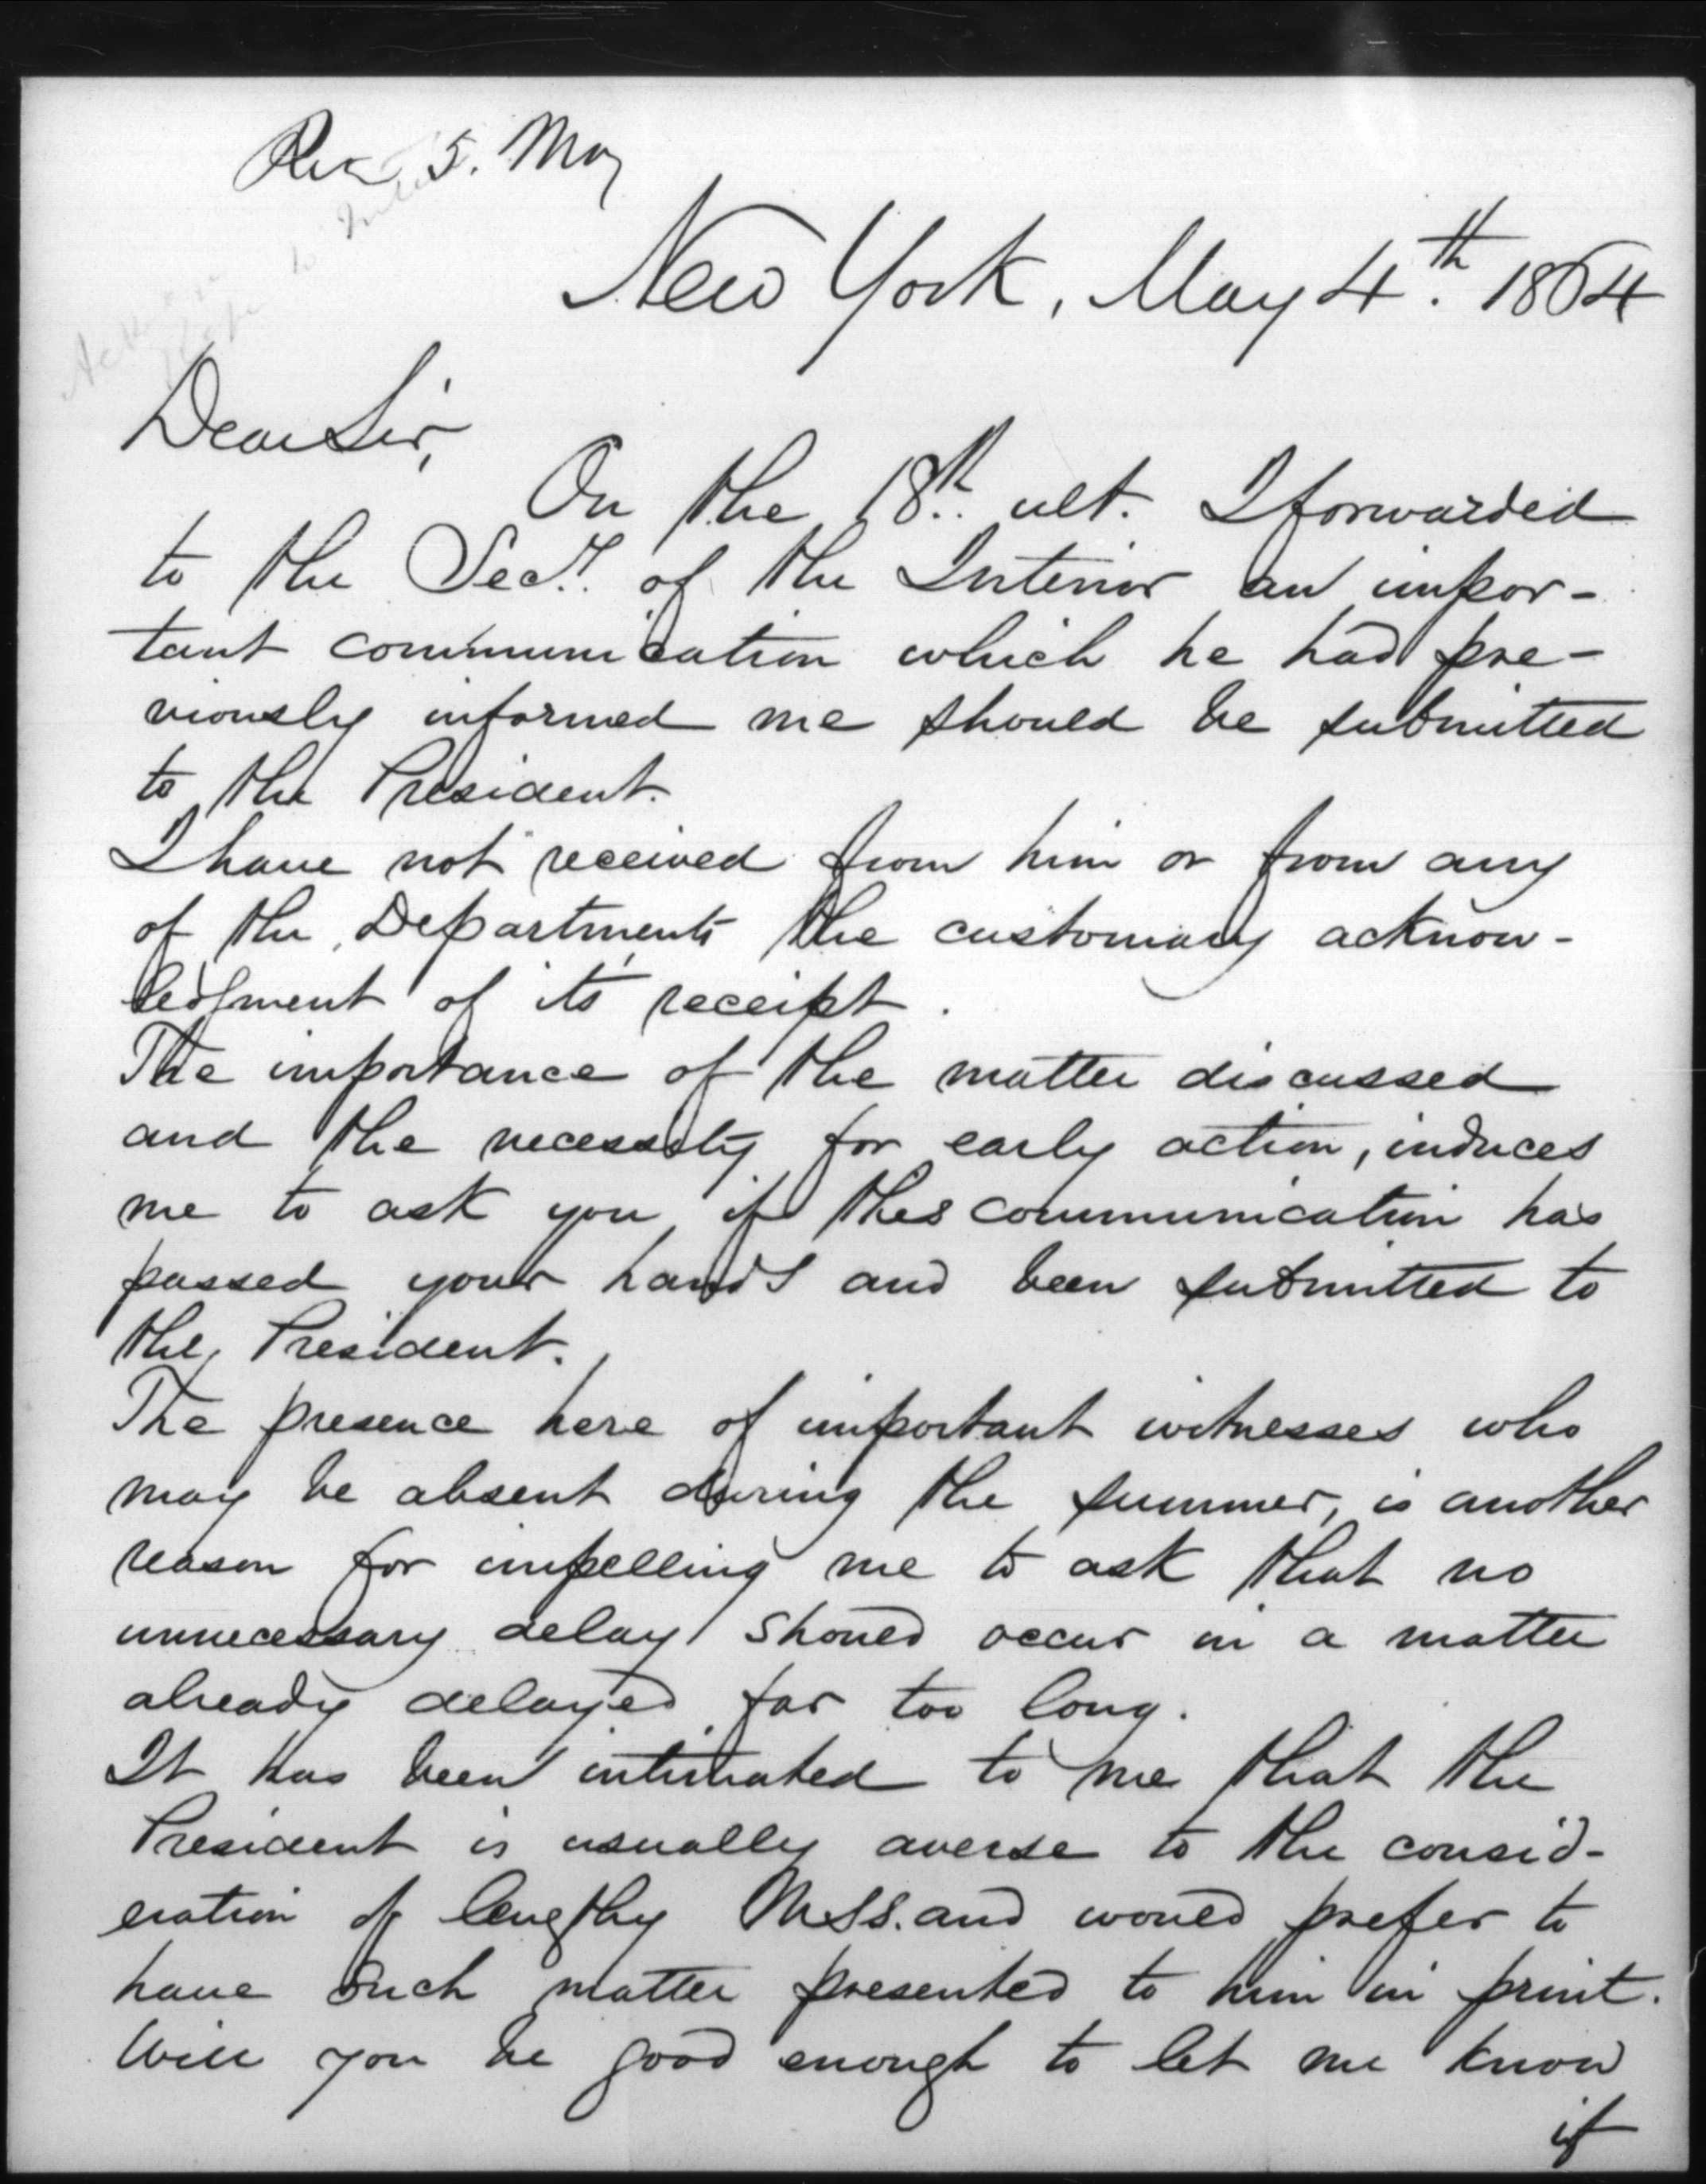 Rec 5. May
New York, May 4th. 1864
Dear Sir,
On the 18th. ult. I forwarded
to the Secy. of the Interior an impor-
tant communication which he had pre-
viously informed me should be submitted
to the President.
I have not received from him or from any
of the Departments the customary acknow-
ledgment of its receipt.
The importance of the matter discussed
and the necessity for early action, induces
me to ask you if this communication has
passed your hands and been submitted to
the President.
The presence here of important witnesses who
may be absent during the summer, is another
reason for impelling me to ask that no
unnecessary delay should occur in a matter
already delayed far too long.
It has been intimated to me that the
President is usually averse to the consid-
eration of lengthy MSS. and would prefer to
have such matter presented to him in print.
Will you be good enough to let me know
if